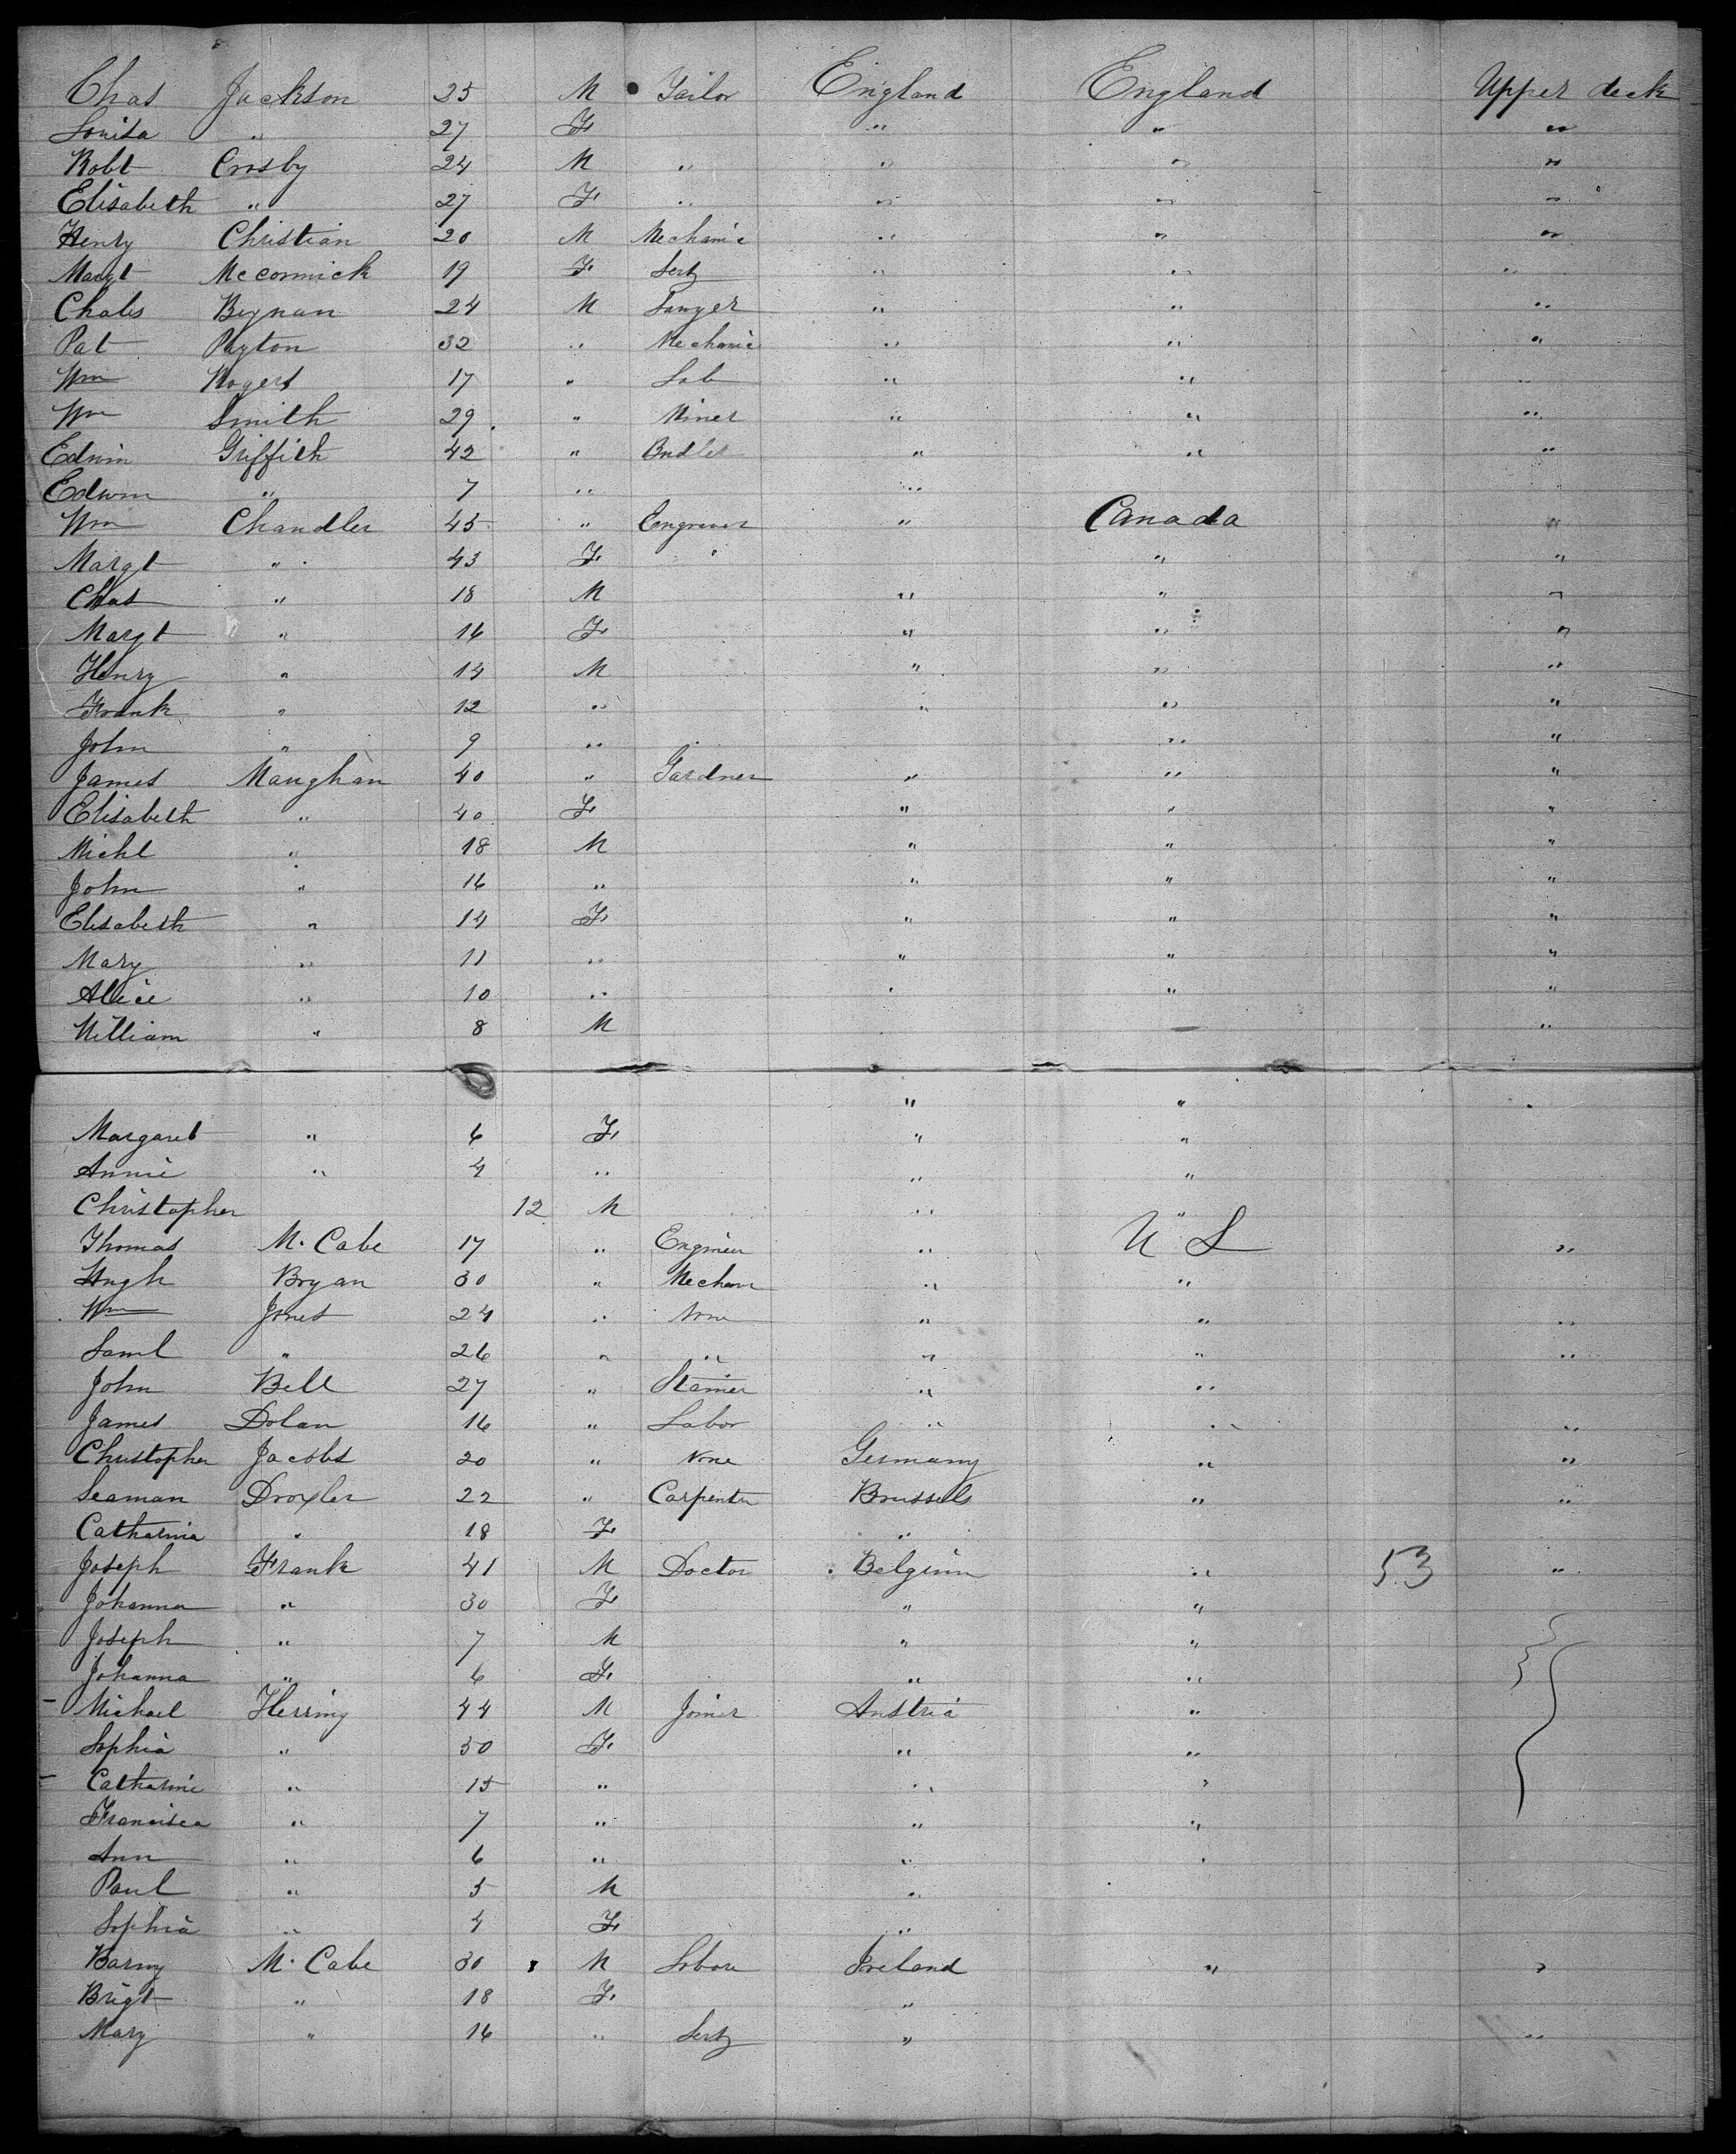 Chas Jackson 25 M Tailor England England Upper deck
Louisa " 27 F " " "
Robt Crosby 24 M " " " "
Elisabeth " 27 F " " " "
Henry Christian 20 M Mechanic " " "
Margt McCormick 19 F " " "
Chales Bignan 24 M Sawyer " " "
Pat Payton 32 " Mechanic " " "
Wm Rogers 17 " Lab " " "
Wm Smith 29 " Miner " " "
Edwin Griffith 42 " " " "
Edwin " 7 " "
Wm Chandler 45 " Engraver " Canada "
Margt " 43 F " " "
Chas " 18 M " " "
Margt " 16 F " " "
Henry " 14 M " " "
Frank " 12 " " " "
John " 9 " " "
James Maughan 40 " Gardner " " "
Elisabeth " 40 F " " "
Michl " 18 M " " "
John " 16 " " " "
Elisabeth " 14 F " " "
Mary " 11 " " " "
Alice " 10 " " " "
William " 8 M "
" "
Margaret " 6 F " "
Annie " 4 " " "
Christopher 12 M " "
Thomas M. Cabe 17 " Engineer " U S "
Hugh Bryan 30 " Mechan " "
Wm Jones 24 " None " " "
Saml " 26 " " " " "
John Bell 27 " Stainer " "
James Dolan 16 " Labor " " "
Christopher Jacobs 20 " None Germany " "
Seaman Droxler 22 " Carpenter Brussels " "
Catharina " 18 F "
Joseph Frank 41 M Doctor Belgium " 53 "
Johanna " 30 F " "
Joseph " 7 M " "
Johanna " 6 F " "
Michael Herring 44 M Joiner Austria "
Sophia " 30 F " "
Catharine " 15 " " "
Francisca " 7 " " "
Ann " 6 " " "
Paul " 5 M "
Sophia " 4 F "
Barny M. Cabe 30 M Labore Ireland " "
Brigt " 18 F "
Mary " 16 " " "